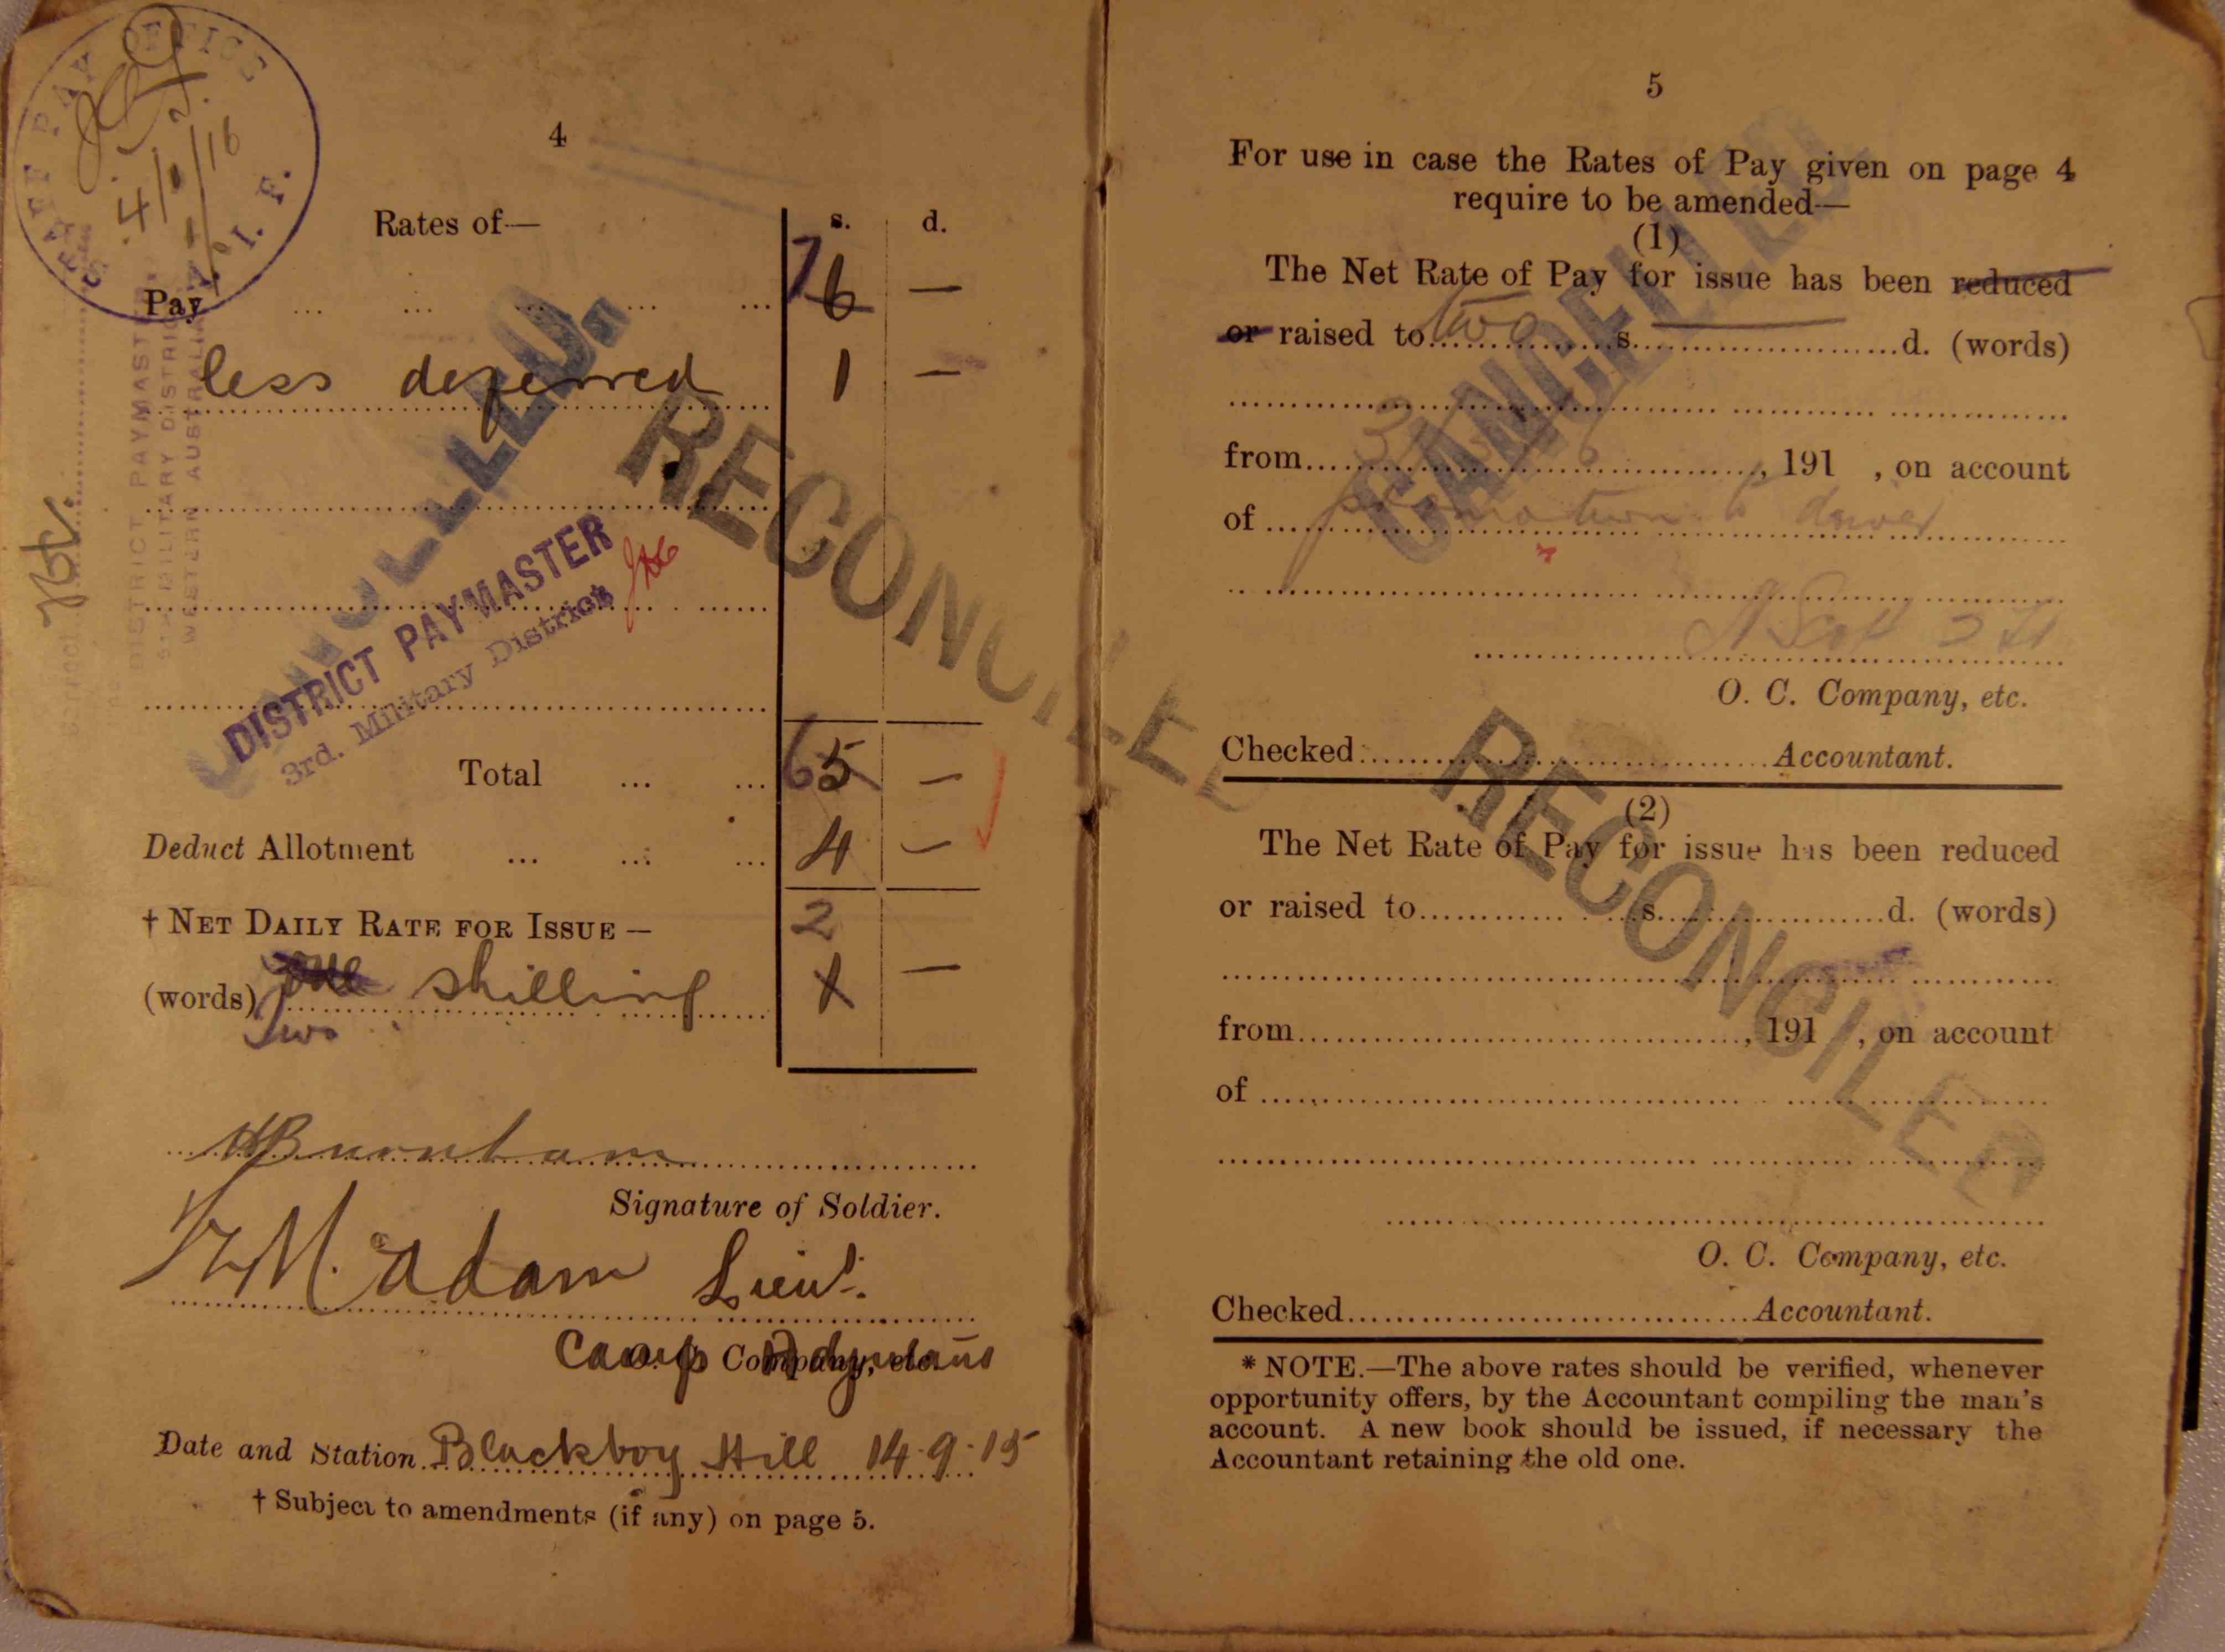 STAFF PAY OFFICE
A. I. F.
4/ /16
4
Rates of—
s. d.
Pay ... ... ... ... ... 7 6 —
less deferred 1 —
DISTRICT PAYMASTER
5TH MILITARY DISTRICT
WESTERN AUSTRALIA
CANCELLED.
RECONCILED
DISTRICT PAYMASTER
3rd. Military District
Total ... ... 6 5 —
Deduct Allotment ... ... ... 4 —
† NET DAILY RATE FOR ISSUE — 2
(words) one shilling 1 —
Two
Burnham
Signature of Soldier.
Adam Lieut.
Camp Adjutant
O. C. Company, etc.
Date and Station Blackboy Hill 14.9.15
† Subject to amendments (if any) on page 5.
5
For use in case the Rates of Pay given on page 4
require to be amended—
(1)
The Net Rate of Pay for issue has been reduced
or raised to two s. — d. (words)
CANCELLED
from 3, 191 , on account
of promotion to driver
Scott
O. C. Company, etc.
Checked Accountant.
RECONCILED
(2)
The Net Rate of Pay for issue has been reduced
or raised to s. d. (words)
from , 191 , on account
of
O. C. Company, etc.
Checked Accountant.
* NOTE.—The above rates should be verified, whenever
opportunity offers, by the Accountant compiling the man's
account. A new book should be issued, if necessary the
Accountant retaining the old one.